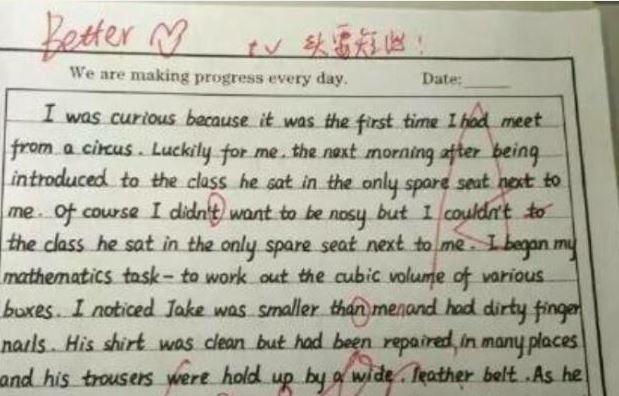 Better
We are making progress every day. Date:
I was curious because it was the first time I had meet
from a circus. Luckily for me, the next morning after being
introduced to the class he sat in the only spare seat next to
me. Of course I didn't want to be nosy but I couldn't to
the class he sat in the only spare seat next to me. I began my
mathematics task - to work out the cubic volume of various
boxes. I noticed Jake was smaller than menand had dirty finger
nails. His shirt was clean but had been repaired, in many places
and his trousers were hold up by a wide, leather belt. As he